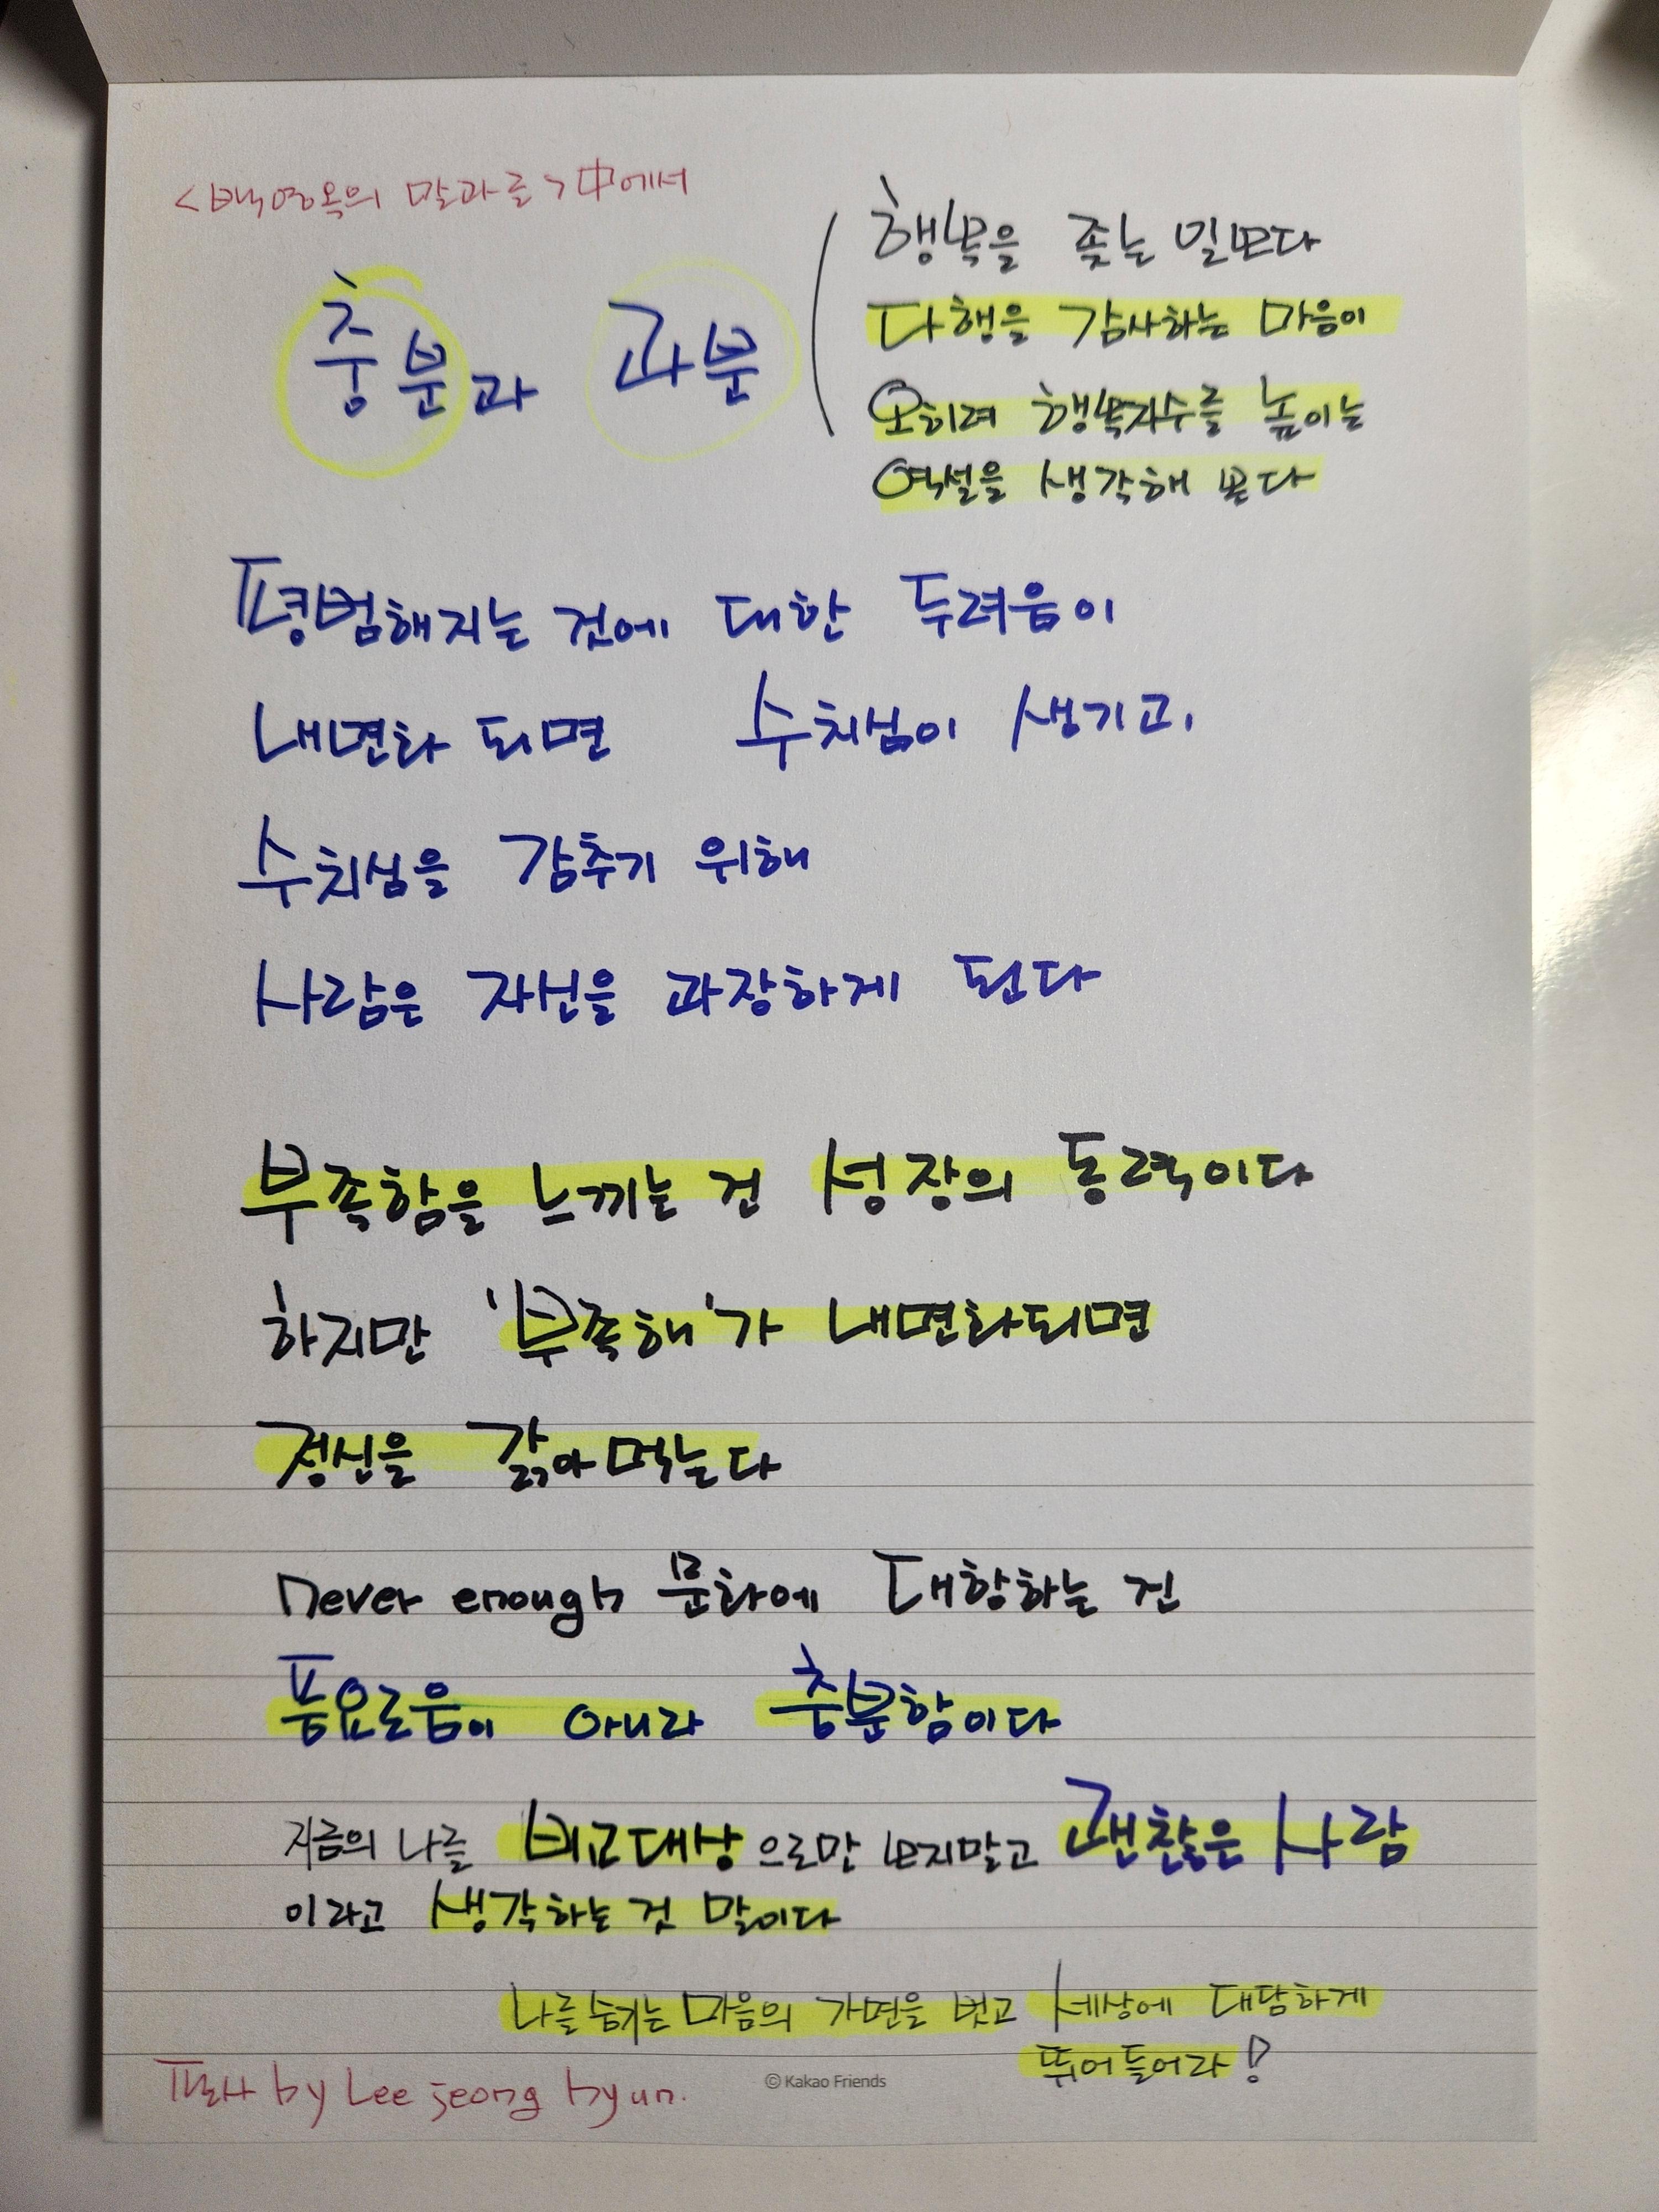 <백영옥의 말과 글> 中에서
충분과 과분
행복을 좇는 일보다
다행을 감사하는 마음이
오히려 행복지수를 높이는
역설을 생각해 본다
평범해지는 것에 대한 두려움이
내면화 되면 수치심이 생기고,
수치심을 감추기 위해
사람은 자신을 과장하게 된다
부족함을 느끼는 건 성장의 동력이다
하지만 '부족해'가 내면화되면
정신을 갉아먹는다
never enough 문화에 대항하는 건
풍요로움이 아니라 충분함이다
지금의 나를 비교대상으로만 보지말고 괜찮은 사람
이라고 생각하는 것 말이다
나를 숨기는 마음의 가면을 벗고 세상에 대담하게
뛰어들어라!
필사 by Lee jeong hyun.
© Kakao Friends